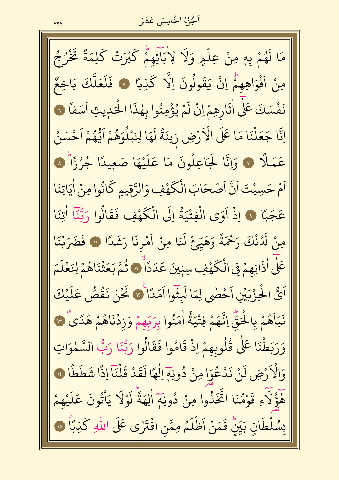 اَلْجُزْءُ الْخَامِسَ عَشَرَ
مَا لَهُمْ بِهِ مِنْ عِلْمٍ وَلَا لِاٰبَٓائِهِمْۜ كَبُرَتْ كَلِمَةً تَخْرُجُ
مِنْ اَفْوَاهِهِمْۜ اِنْ يَقُولُونَ اِلَّا كَذِبًا ۝ فَلَعَلَّكَ بَاخِعٌ
نَفْسَكَ عَلٰٓى اٰثَارِهِمْ اِنْ لَمْ يُؤْمِنُوا بِهٰذَا الْحَدِيثِ اَسَفًا ۝
اِنَّا جَعَلْنَا مَا عَلَى الْاَرْضِ زِينَةً لَهَا لِنَبْلُوَهُمْ اَيُّهُمْ اَحْسَنُ
عَمَلًا ۝ وَاِنَّا لَجَاعِلُونَ مَا عَلَيْهَا صَعِيدًا جُرُزًاۜ ۝
اَمْ حَسِبْتَ اَنَّ اَصْحَابَ الْكَهْفِ وَالرَّقِيمِ كَانُوا مِنْ اٰيَاتِنَا
عَجَبًا ۝ اِذْ اَوَى الْفِتْيَةُ اِلَى الْكَهْفِ فَقَالُوا رَبَّنَٓا اٰتِنَا
مِنْ لَدُنْكَ رَحْمَةً وَهَيِّئْ لَنَا مِنْ اَمْرِنَا رَشَدًا ۝ فَضَرَبْنَا
عَلٰٓى اٰذَانِهِمْ فِي الْكَهْفِ سِنِينَ عَدَدًاۙ ۝ ثُمَّ بَعَثْنَاهُمْ لِنَعْلَمَ
اَيُّ الْحِزْبَيْنِ اَحْصٰى لِمَا لَبِثُٓوا اَمَدًا۟ ۝ نَحْنُ نَقُصُّ عَلَيْكَ
نَبَاَهُمْ بِالْحَقِّۜ اِنَّهُمْ فِتْيَةٌ اٰمَنُوا بِرَبِّهِمْ وَزِدْنَاهُمْ هُدًىۗ ۝
وَرَبَطْنَا عَلٰى قُلُوبِهِمْ اِذْ قَامُوا فَقَالُوا رَبُّنَا رَبُّ السَّمٰوَاتِ
وَالْاَرْضِ لَنْ نَدْعُوَ۬ا مِنْ دُونِهِٓ اِلٰهًا لَقَدْ قُلْنَٓا اِذًا شَطَطًا ۝
هٰٓؤُ۬لَٓاءِ قَوْمُنَا اتَّخَذُوا مِنْ دُونِهِٓ اٰلِهَةًۜ لَوْلَا يَأْتُونَ عَلَيْهِمْ
بِسُلْطَانٍ بَيِّنٍۜ فَمَنْ اَظْلَمُ مِمَّنِ افْتَرٰى عَلَى اللّٰهِ كَذِبًاۜ ۝